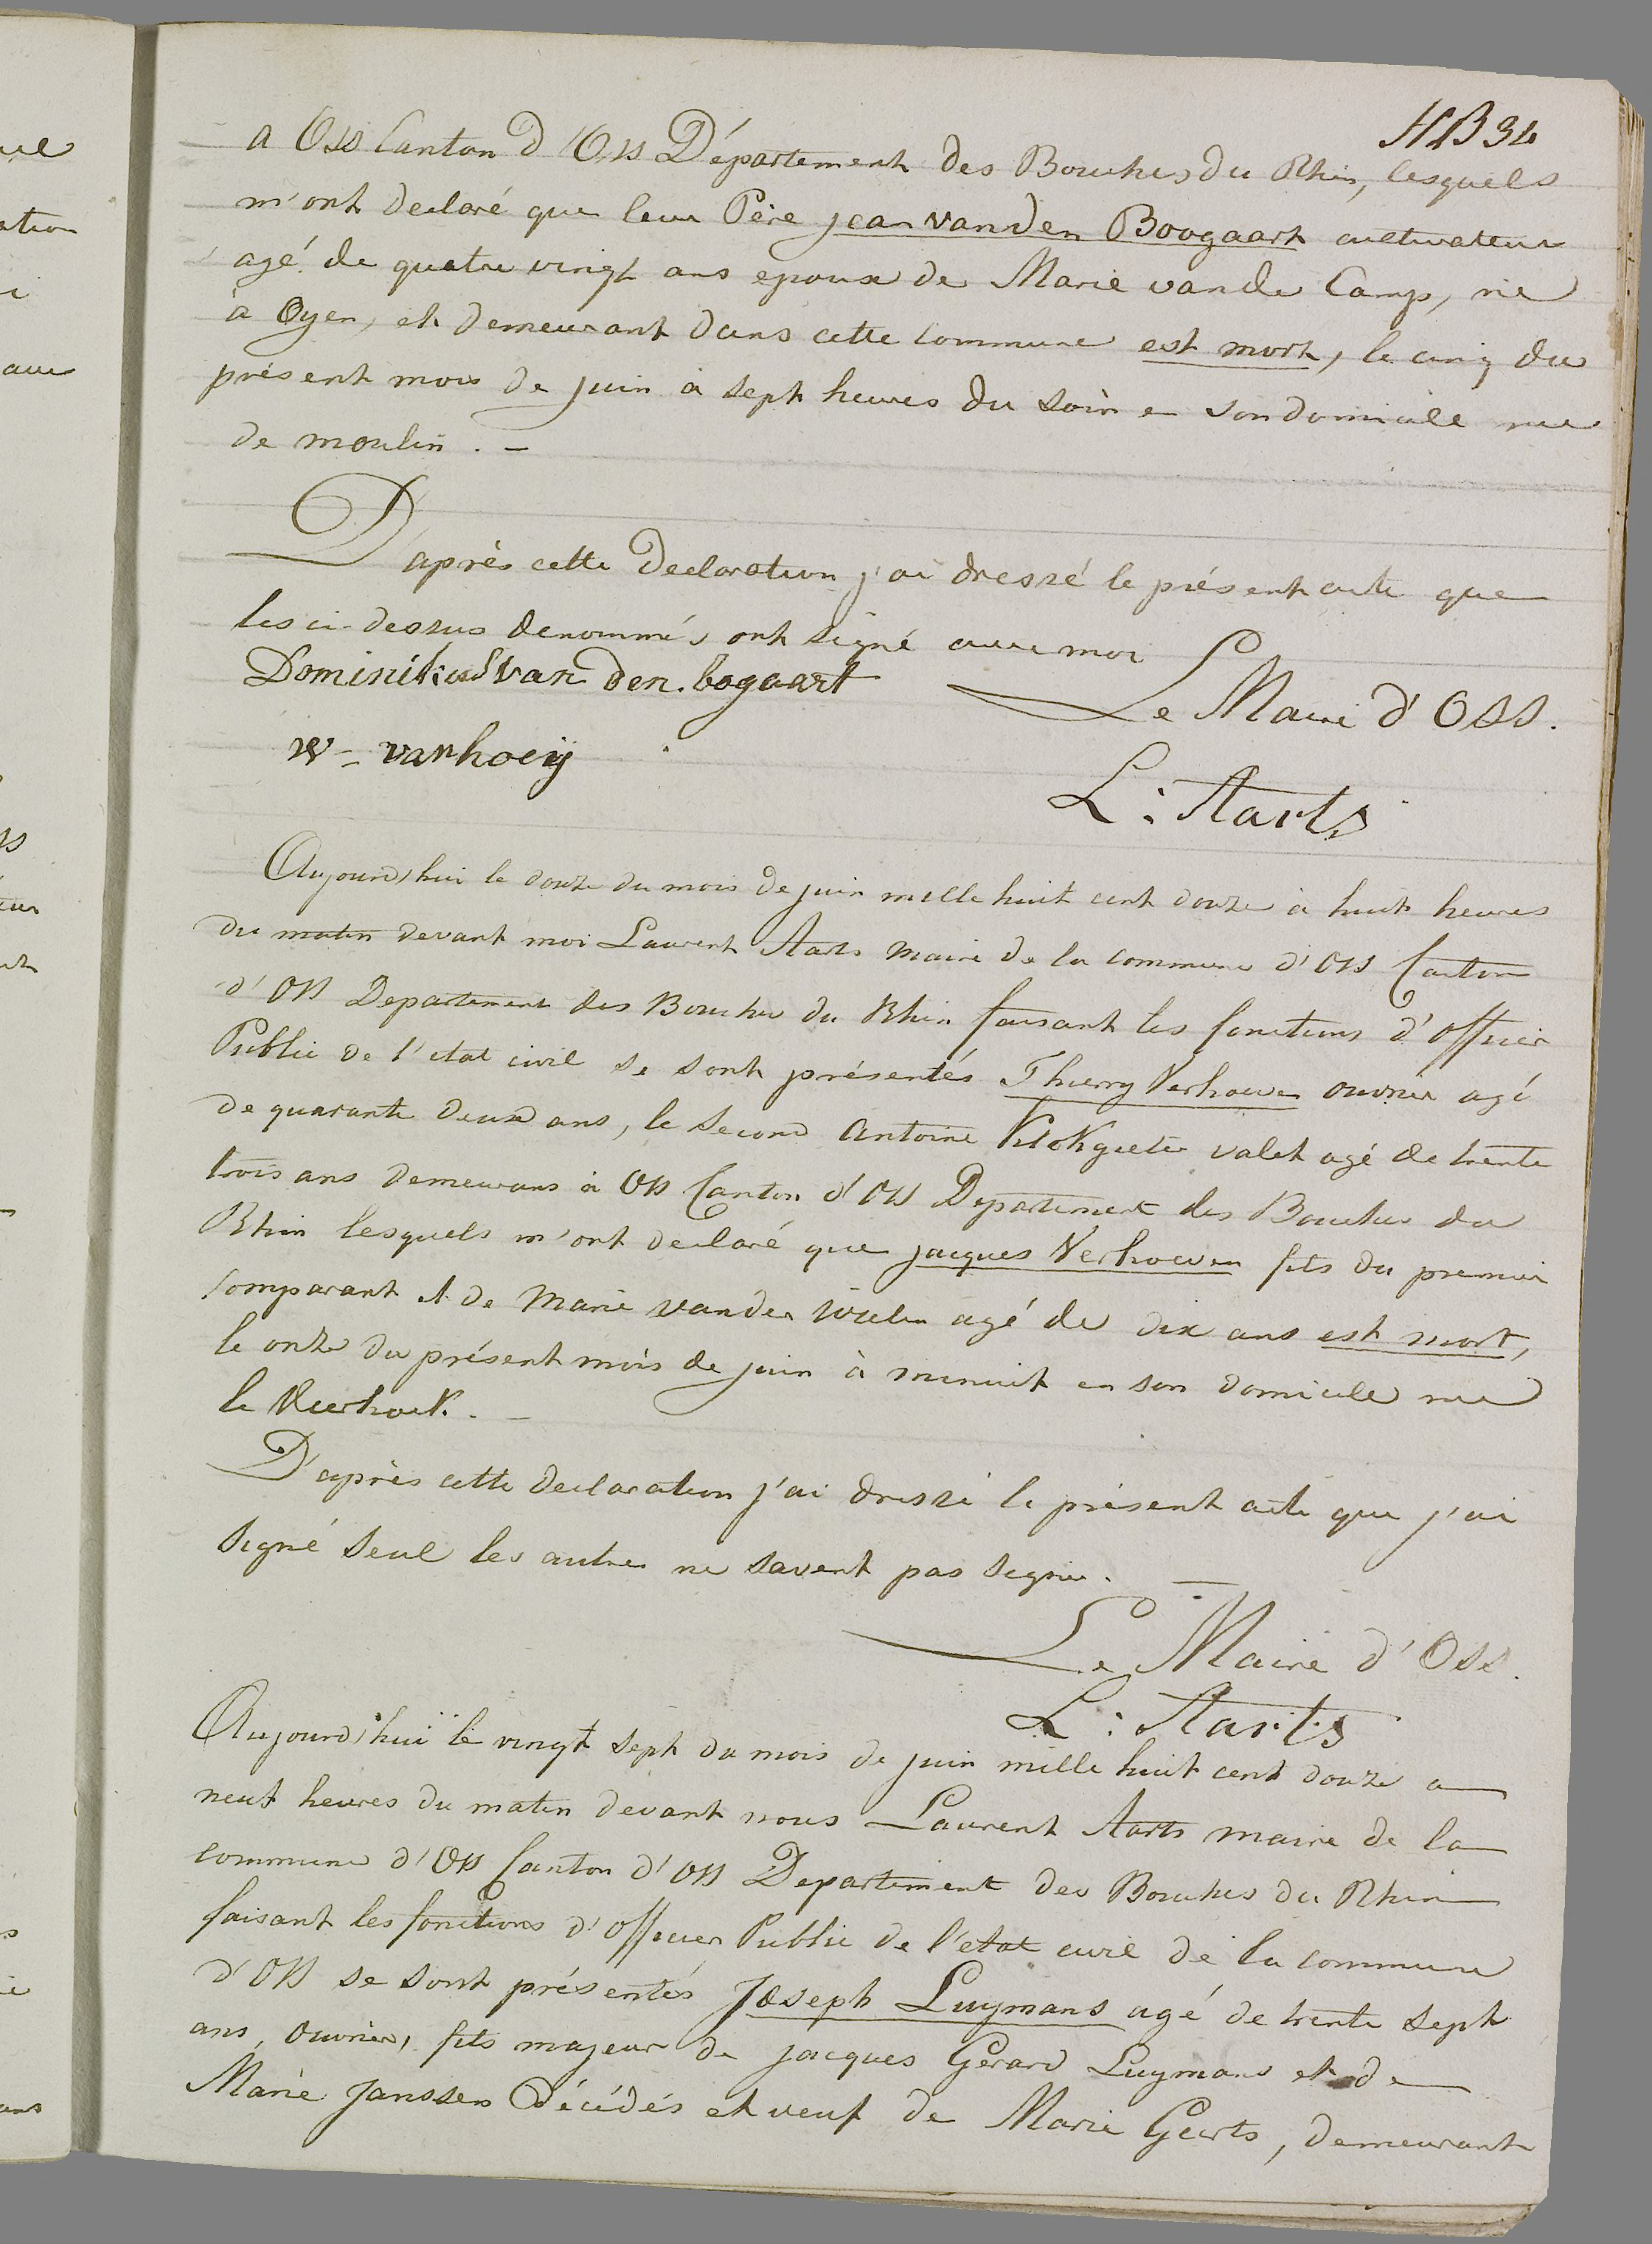 HB 34
a Oss Canton d'Oss Département des Bouches du Rhin, lesquels
m'ont declaré que leur Père jean vanden Boogaart cultivateur
agé de quatre vingt ans epoux de Marie vande Camp, né
à Oyen, et demeurant dans cette commune est mort, le cinq du
présent mois de juin à sept heures du soir en son domicile rue
de moulin . –
D'après cette Declaration j'ai dressé le présent acte que
les ci-dessus denommés ont signé avec moi
Dominikus van den. bogaart
Le Maire d'Oss.
w - vanhoeij
L: Aarts
Aujourd'hui le douze du mois de juin mille huit cent douze à huit heures
du matin devant moi Laurent Aarts maire de la commune d'Oss Canton
d'Oss Departement des Bouches du Rhin faisant les fonctions d'officier
Public de l'etat civil se sont présentés Thierry Verhoeven ouvrier agé
de quarante deux ans, le second Antoine valet agé de trente
trois ans demeurans à Oss Canton d'Oss Departement des Bouches du
Rhin lesquels m'ont declaré que jacques Verhoeven fils du premier
comparant et de Marie vander agé de dix ans est mort,
le onze du présent mois de juin à minuit en son domicile rue
le
D'après cette declaration j'ai dressé le présent acte que j'ai
signé seul les autres ne savent pas signer. –
Le Maire d'Oss.
L: Aarts
Aujourd'hui le vingt sept du mois de juin mille huit cent douze a
neuf heures du matin devant nous Laurent Aarts maire de la
commune d'Oss Canton d'Oss Departement des Bouches du Rhin
faisant les fonctions d'officier Public de l'etat civil de la commune
d'Oss se sont présentés Joseph Luymans agé de trente sept
ans, ouvrier, fils majeur de jacques Gerard Luymans et de
Marie Janssen Décédés et veuf de Marie Geerts, demeurant